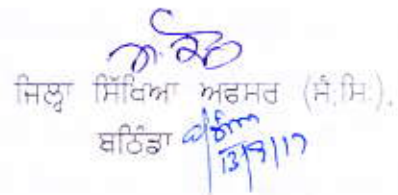 ਜਿਲ੍ਹਾ ਸਿੱਖਿਆ ਅਫਸਰ (ਸੈ.ਸਿ.),
ਬਠਿੰਡਾ
13/9/17